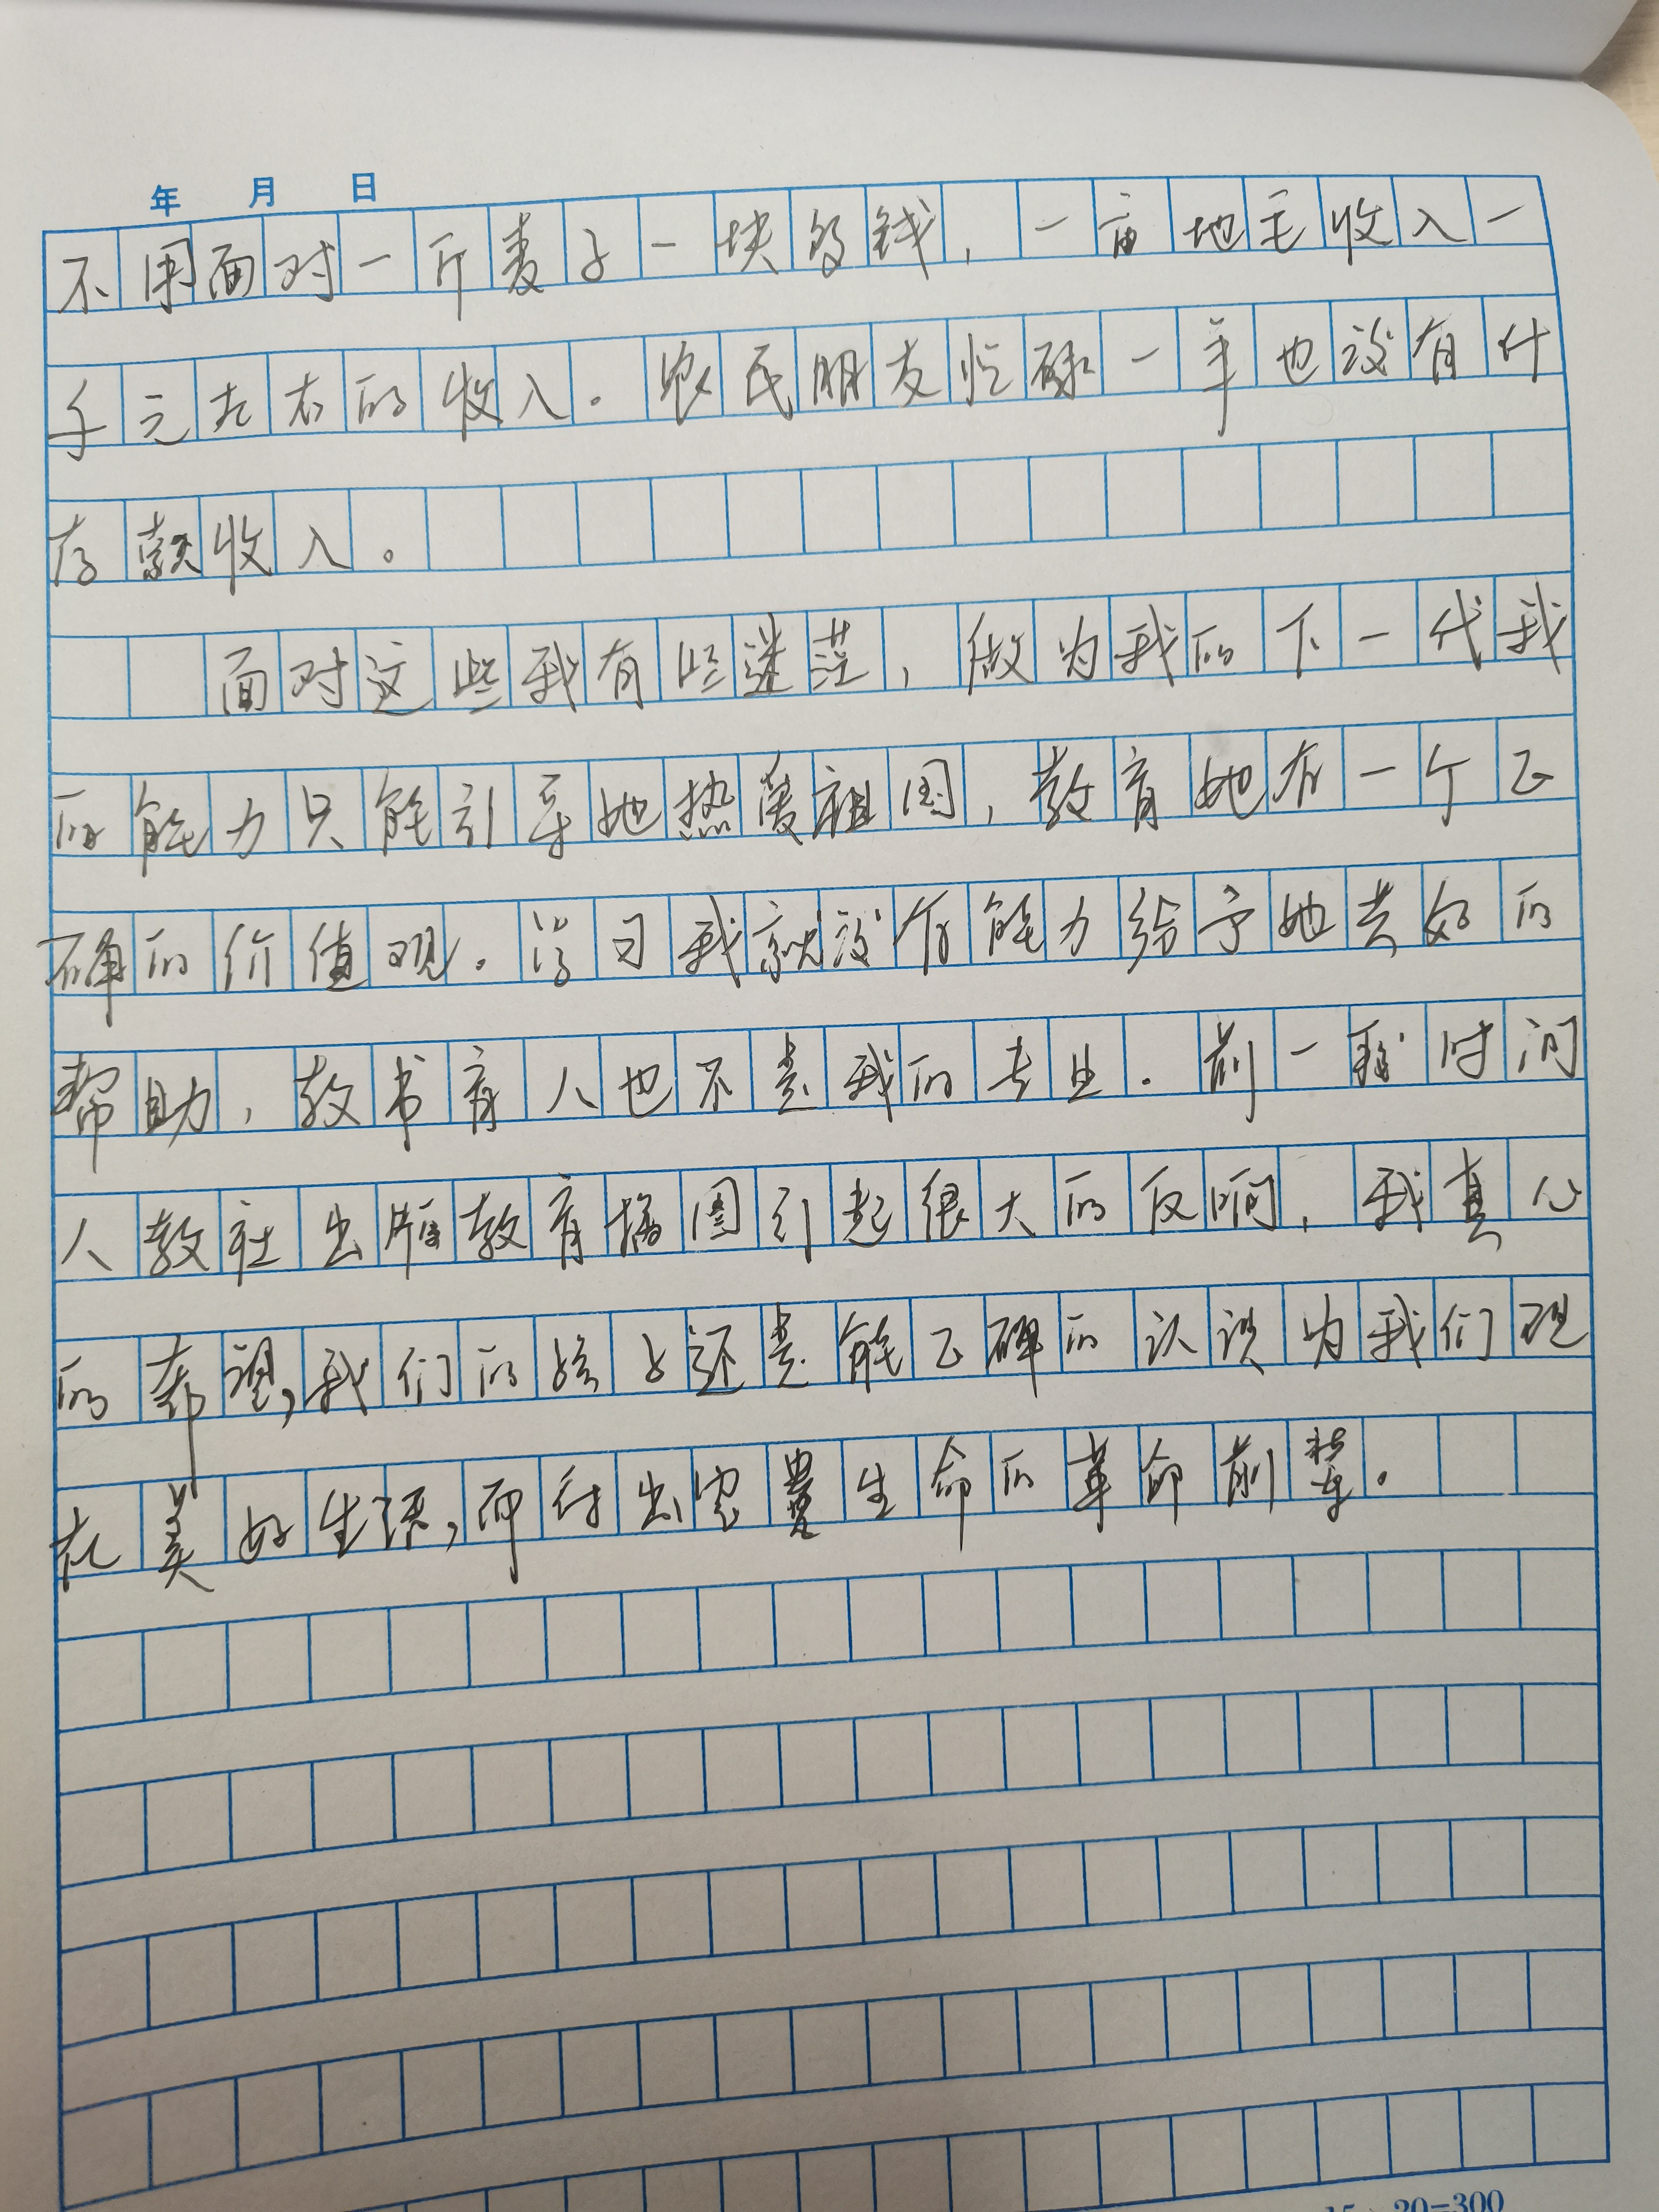 年 月 日
不用面对一斤麦子一块多钱，一亩地毛收入一
千元左右的收入。农民朋友忙碌一年也没有什
存款收入。
面对这些我有些迷茫，做为我的下一代我
的能力只能引导她热爱祖国，教育她有一个正
确的价值观。学习我就没有能力给予她太好的
帮助，教书育人也不是我的专业。前一段时间
人教社出版教育插图引起很大的反响，我真心
的希望，我们的孩子还是能正确的认识为我们现
在美好生活，而付出宝贵生命的革命前辈。